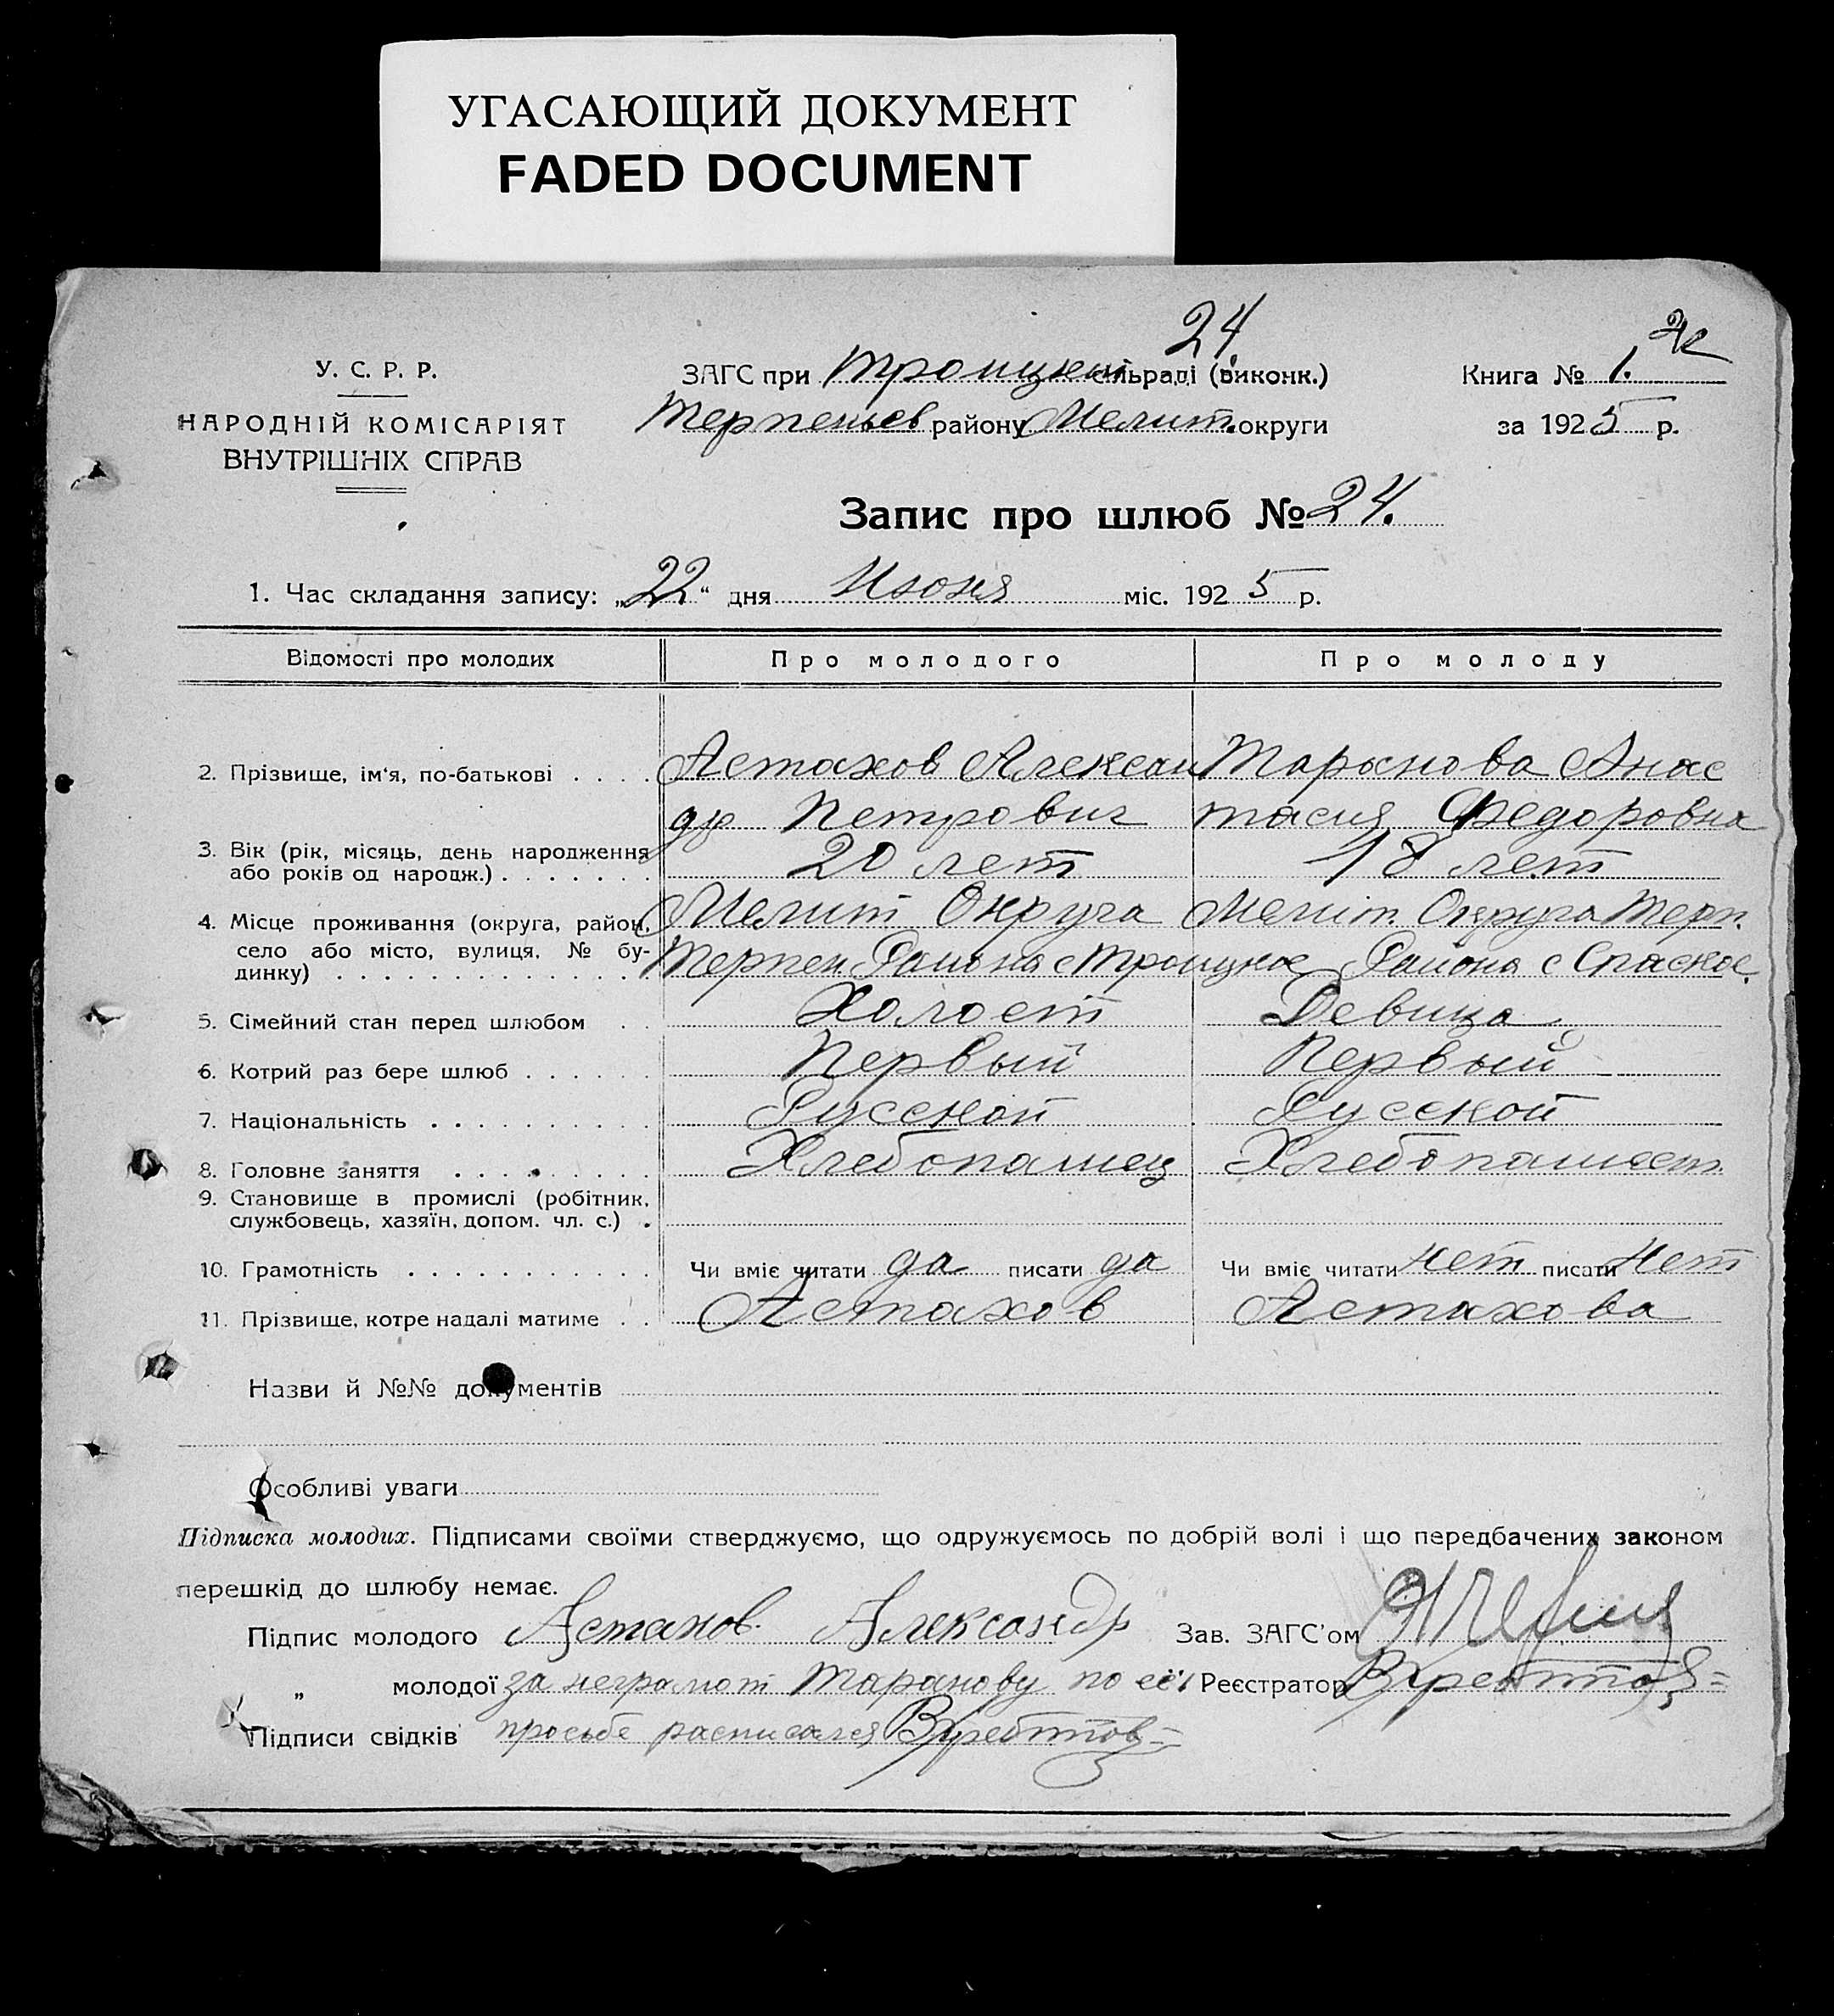 УГАСАЮЩИЙ ДОКУМЕНТ
FADED DOCUMENT
24.
У. С. Р. Р.
НАРОДНІЙ КОМІСАРІЯТ
ВНУТРІШНІХ СПРАВ
ЗАГС при Троицкой сільраді (виконк.)
Терпеньев району Мелит. округи
Книга № 1.
за 1925 р.
Запис про шлюб № 24.
1. Час складання запису: „22“ дня Июня міс. 1925 р.
Відомості про молодих Про молодого Про молоду
2. Прізвище, ім‘я, по-батькові . . . . Астахов Алексан Таранова Анас
др Петрович тасия Федоровна
3. Вік (рік, місяць, день народження
або років од народж.) . . . . . . . 20 лет 18 лет
4. Місце проживання (округа, район, Мелит Округа Мелит. Округа Терп.
село або місто, вулиця, № бу-
динку) . . . . . . . . . . . . . . Терпен. Района с Троицкое Района с Спаское.
5. Сімейний стан перед шлюбом . . Холост Девица
6. Котрий раз бере шлюб . . . . . . Первый Первый
7. Національність . . . . . . . . . . Русской Русской
8. Головне заняття . . . . . . . . Хлебопашец Хлебопашест.
9. Становище в промислі (робітник,
службовець, хазяїн, допом. чл. с.) .
10. Грамотність . . . . . . . . . . . Чи вміє читати да писати да Чи вміє читати нет писати нет
11. Прізвище, котре надалі матиме . . Астахов Астахова
Назви й №№ документів
Особливі уваги
Підписка молодих. Підписами своїми стверджуємо, що одружуємось по добрій волі і що передбачених законом
перешкід до шлюбу немає.
Підпис молодого Астахов. Александр Зав. ЗАГС'ом
„ молодої за неграмот Таранову по её Реєстратор
Підписи свідків просьбе расписался